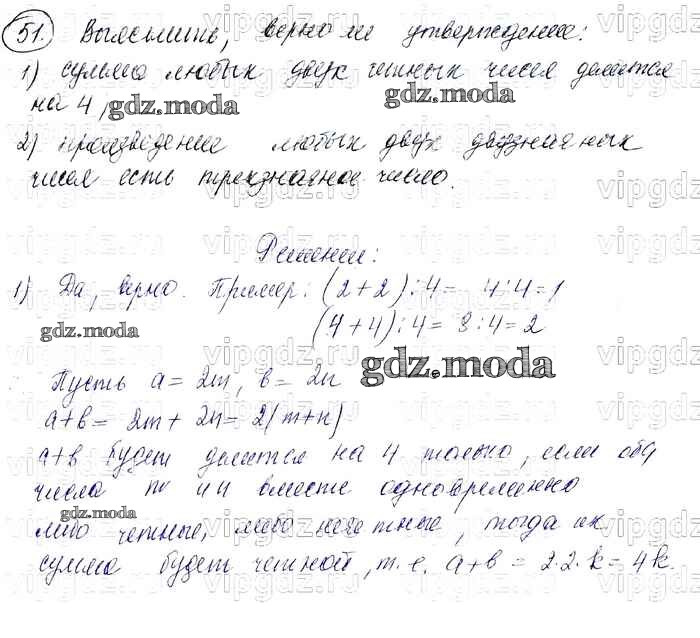 51. Выясните, верно ли утверждение:
1) сумма любых двух четных чисел делится
на 4,
gdz.moda
gdz.moda
2) произведение любых двух двузначных
чисел есть трехзначное число.
Решение:
1) Да, верно. Пример: (2+2):4= 4:4=1
(4+4):4= 8:4=2
gdz.moda
gdz.moda
Пусть a=2m, b=2n
a+b= 2m+2n=2(m+n)
a+b будет делится на 4 только, если оба
числа m и n вместе одновременно
gdz.moda
либо четные, либо нечетные, тогда их
сумма будет четной, т.е. a+b = 2·2·k=4k.
vipgdz.ru